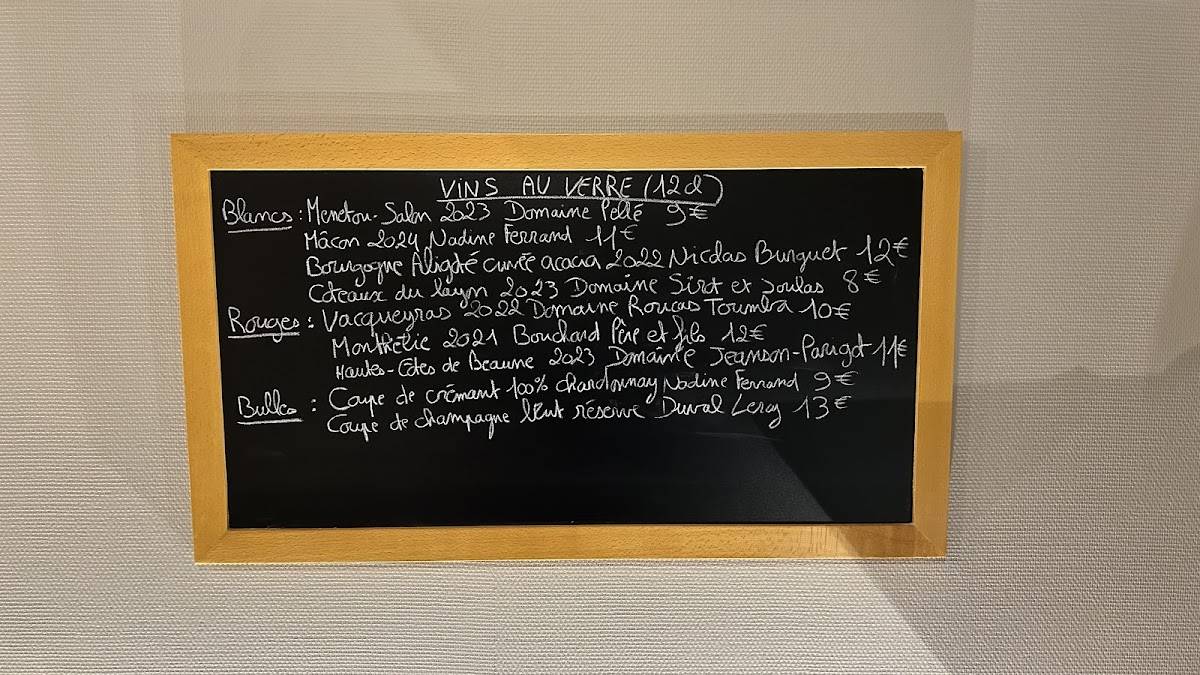 VINS AU VERRE (12cl)
Blancs : Menetou-Salon 2023 Domaine Pellé 9€
Mâcon 2024 Nadine Ferrand 11€
Bourgogne Aligoté cuvée acacia 2022 Nicolas Burguet 12€
Coteaux du layon 2023 Domaine Sirot et Soulas 8€
Rouges : Vacqueyras 2022 Domaine Roucas Toumba 10€
Monthélie 2021 Bouchard Père et fils 12€
Hautes-Côtes de Beaune 2023 Domaine Jeanson-Parigot 11€
Bulles : Coupe de crémant 100% chardonnay Nadine Ferrand 9€
Coupe de champagne brut réserve Duval Leroy 13€